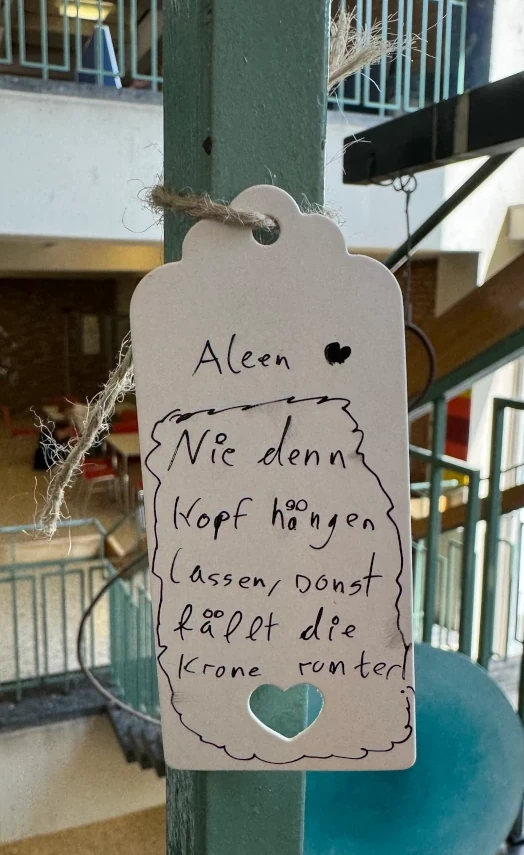 Aleen ♥
Nie denn
Kopf hängen
lassen, sonst
fällt die
Krone runter!